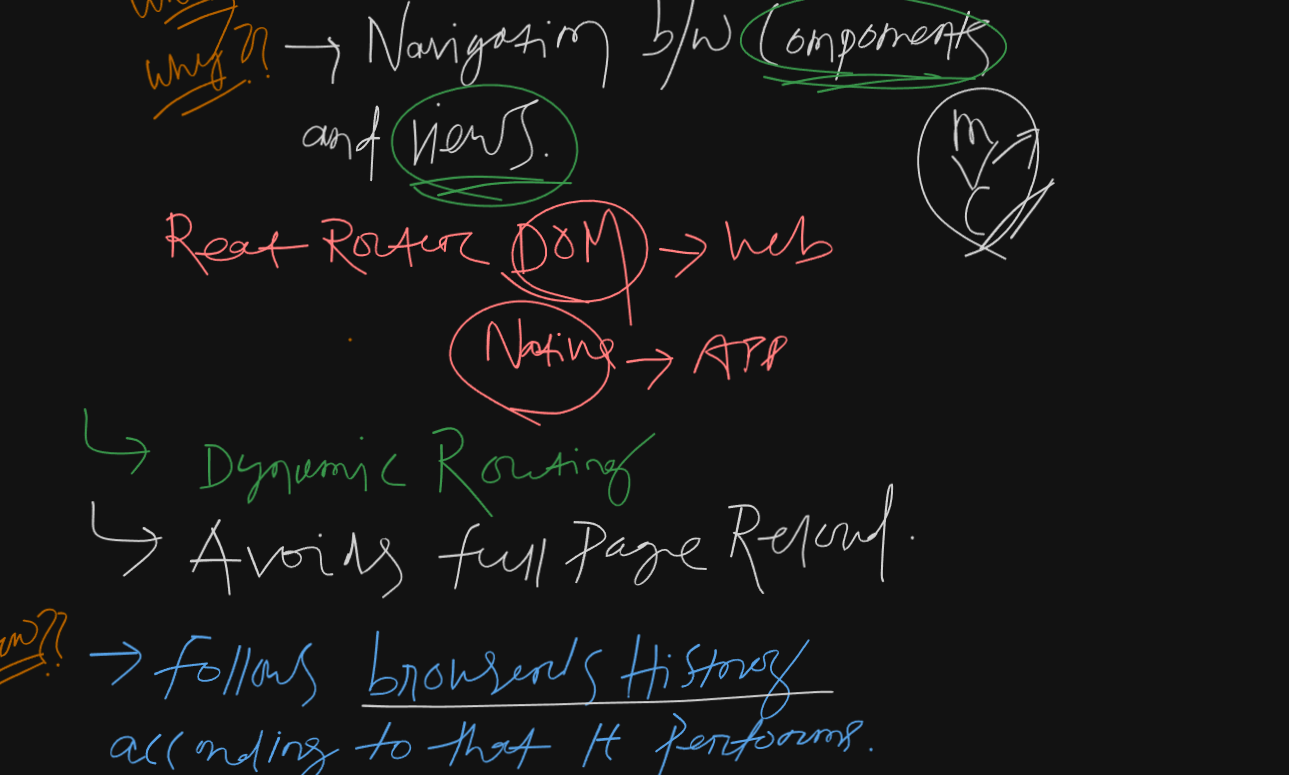 why??
→ Navigation b/w Components
and views.
M
V
C
React Router DOM → Web
Native → APP
Dynamic Routing
Avoids full Page Reload.
→ follows browsers History
according to that It Performs.